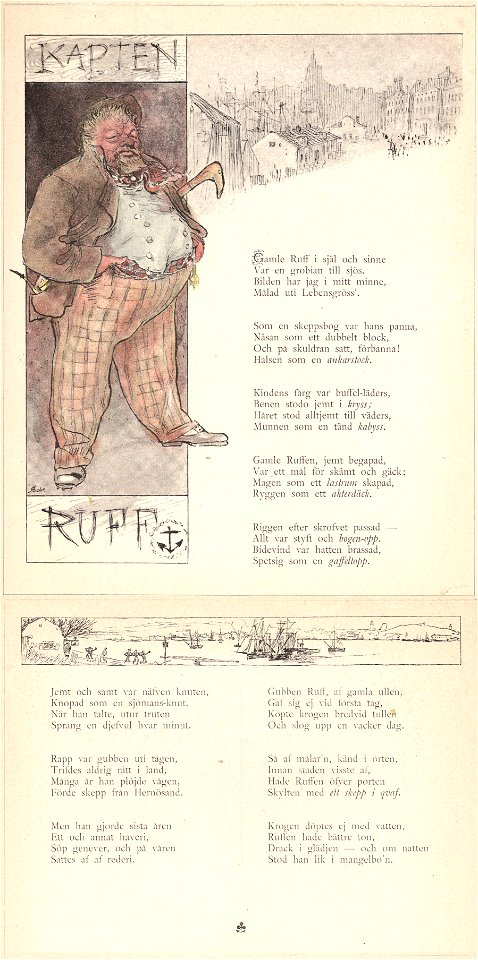 KAPTEN
RUFF
Gamle Ruff i själ och sinne
Var en grobian till sjös.
Bilden har jag i mitt minne,
Målad uti Lebensgröss'.
Som en skeppsbog var hans panna,
Näsan som ett dubbelt block,
Och på skuldran satt, förbanna!
Halsen som en ankarstock.
Kindens färg var buffel-läders,
Benen stodo jemt i kryss;
Håret stod alltjemt till väders,
Munnen som en tänd kabyss.
Gamle Ruffen, jemt begapad,
Var ett mål för skämt och gäck;
Magen som ett lastrum skapad,
Ryggen som ett akterdäck.
Riggen efter skrofvet passad —
Allt var styft och bogen-opp.
Bidevind var hatten brassad,
Spetsig som en gaffeltopp.
Jemt och samt var näfven knuten,
Knopad som en sjömans-knut.
När han talte, utur truten
Sprang en djefvul hvar minut.
Rapp var gubben uti tagen,
Trifdes aldrig rätt i land,
Många år han plöjde vågen,
Förde skepp från Hernösand.
Men han gjorde sista åren
Ett och annat haveri,
Söp genever, och på våren
Sattes af af rederi.
Gubben Ruff, af gamla ullen,
Gaf sig ej vid första tag,
Köpte krogen bredvid tullen
Och slog upp en vacker dag.
Så af målar'n, känd i orten,
Innan staden visste af,
Hade Ruffen öfver porten
Skylten med ett skepp i qvaf.
Krogen döptes ej med vatten,
Ruffen hade bättre ton,
Drack i glädjen — och om natten
Stod han lik i mangelbo'n.